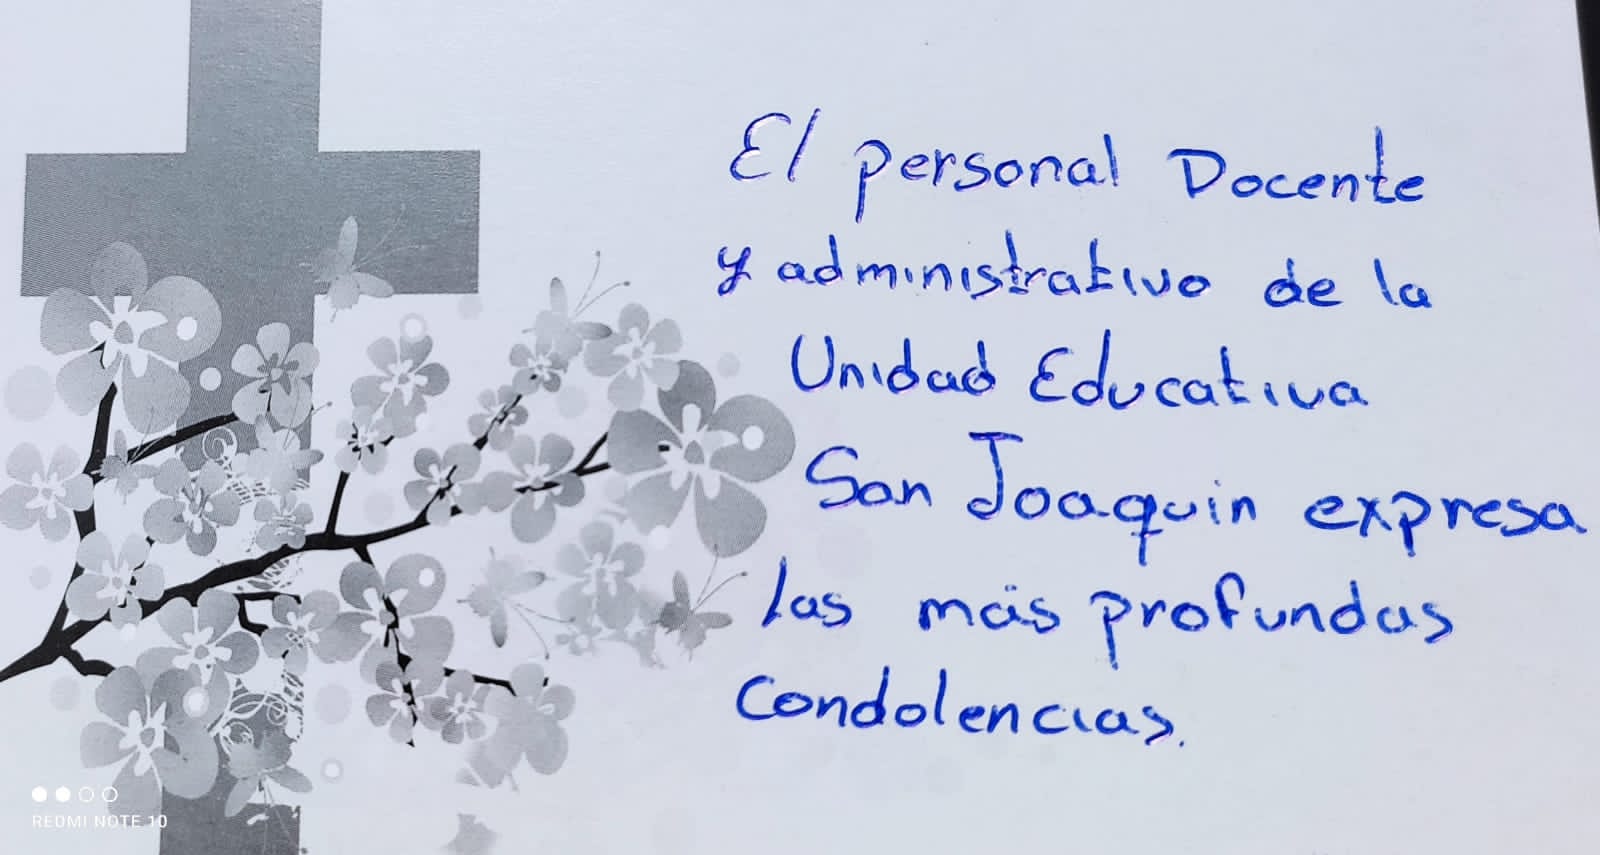 El personal Docente
y administrativo de la
Unidad Educativa
San Joaquin expresa
las más profundas
condolencias.
REDMI NOTE 10